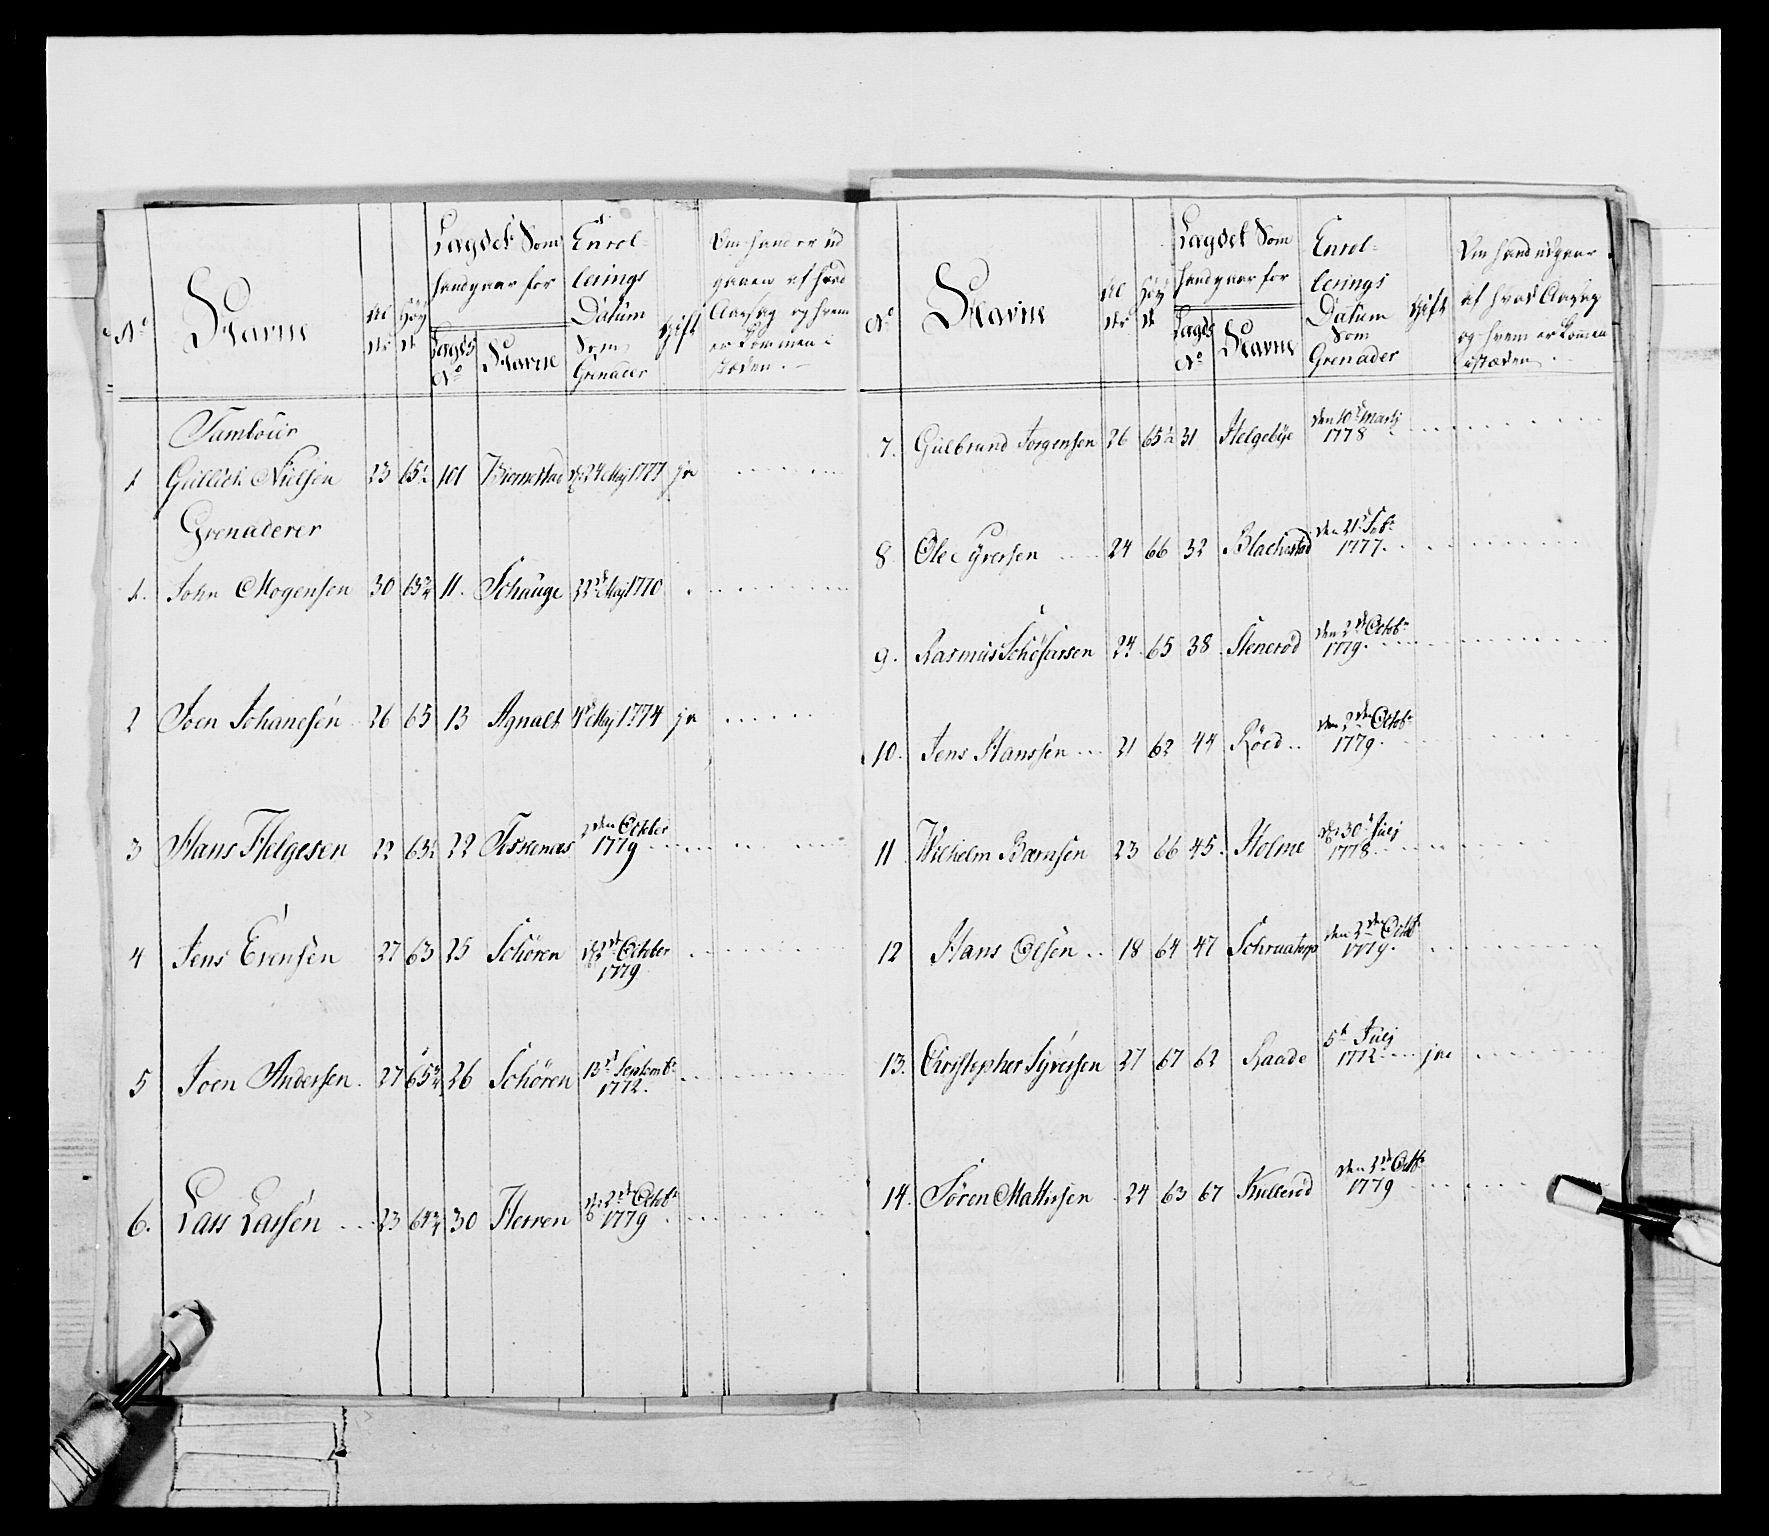 No Navne Al der Høy de Lagdet som hand gaar for Lagds No Navne Enrol-lerings Datum Som Grenader Gift Om hand er ud gaaen af hvad Aarsag og hvem er kommen i stæden.
Tambour
1 Gullich Nielsen 23 65½ 101 Biørnestad d: 24 Maj 1777 ja
Grenaderer
1. John Mogensen 30 65¾ 11. Schauge 22d Maj 1770
2 Joen Johanesen 26 65 13 Agnalt 4d Maj 1774 ja
3 Hans Helgesen 22 63½ 22 Foskenæs 2den October 1779
4 Jens Evensen 27 63 25 Schøren d: 2d October 1779
5 Joen Andersen 27 65¾ 26 Schøren 13d Septembr 1772.
6. Lars Larsen 23 64¾ 30 Herren d: 2d Octobr 1779
No Navne Al der Høy de Lagdet som hand gaar for Lagds No Navne Enrol-lerings Datum Som Grenader Gift Om hand udgaar af hvad Aarsag og hvem er kommen i stæden.
7. Gulbrand Jorgensen 26 65½ 31 Helgebye den 10d Martj 1778
8 Ole Syversen 24 66 32 Blachestad 1777.
9. Rasmus 24 65 38 Stenerød den 2d Octobr 1779.
10. Jens Hanssen 21 62 44 Røed den 2den Octobr 1779.
11 Wilhelm Børnsen 23 66 45. Holme d: 30d Julj 1778
12 Hans Olsen 18 64 47 den 2den Octbr 1779.
13. Christopher Syversen 27 67 62 Raade 5t Julj 1772 ja
14. Søren Mathisen 24 63 67 Kullerød den 2d Octbr 1779